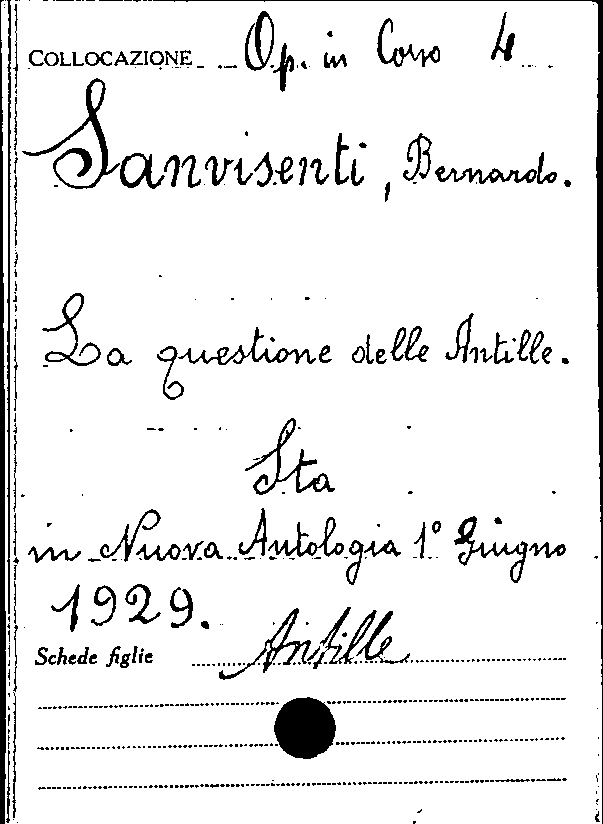 COLLOCAZIONE Op. in Corso 4
Sanvisenti, Bernardo.
La questione delle Antille.
Sta
in Nuova Antologia 1° Giugno
1929.
Schede figlie Antille